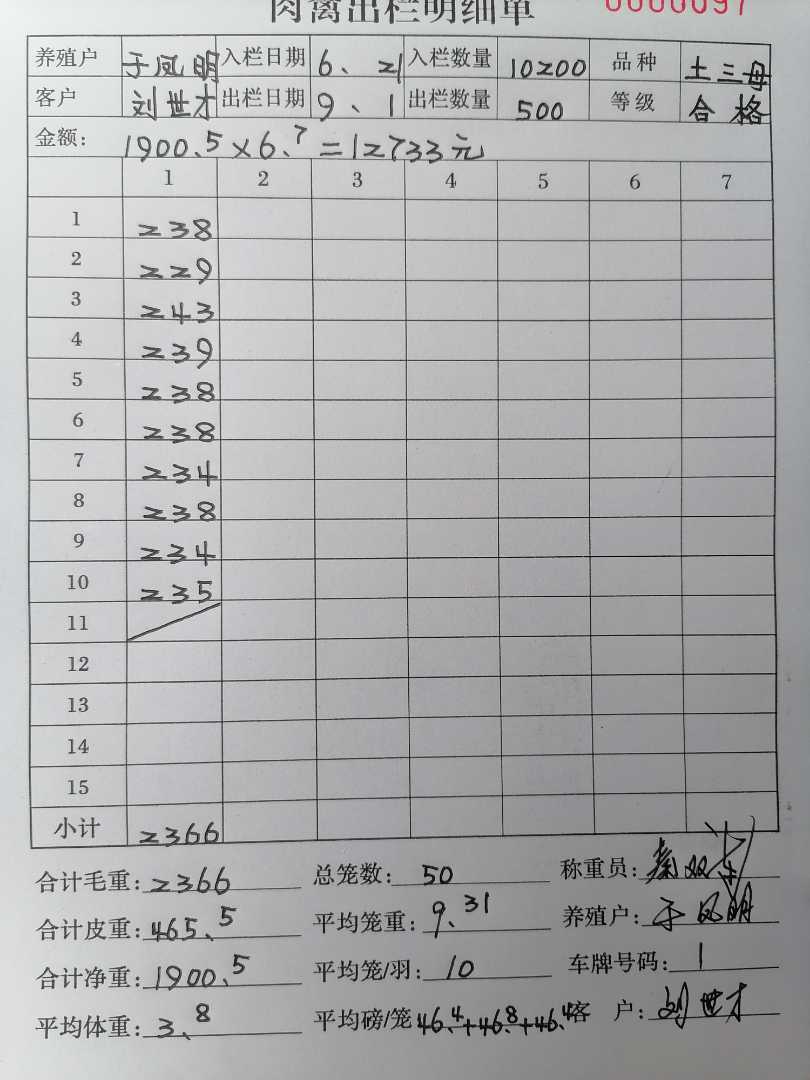 肉禽出栏明细单 0000097
养殖户 于凤明 入栏日期 6、21 入栏数量 10200 品种 土三母
客户 刘世才 出栏日期 9、1 出栏数量 500 等级 合格
金额: 1900.5×6.7=12733元
1 2 3 4 5 6 7
1 238
2 229
3 243
4 239
5 238
6 238
7 234
8 238
9 234
10 235
11
12
13
14
15
小计 2366
合计毛重: 2366 总笼数: 50 称重员: 秦双
合计皮重: 465.5 平均笼重: 9.31 养殖户: 于凤明
合计净重: 1900.5 平均笼/羽: 10 车牌号码: 1
平均体重: 3.8 平均磅/笼 46.4+46.8+46.4 客户: 刘世才